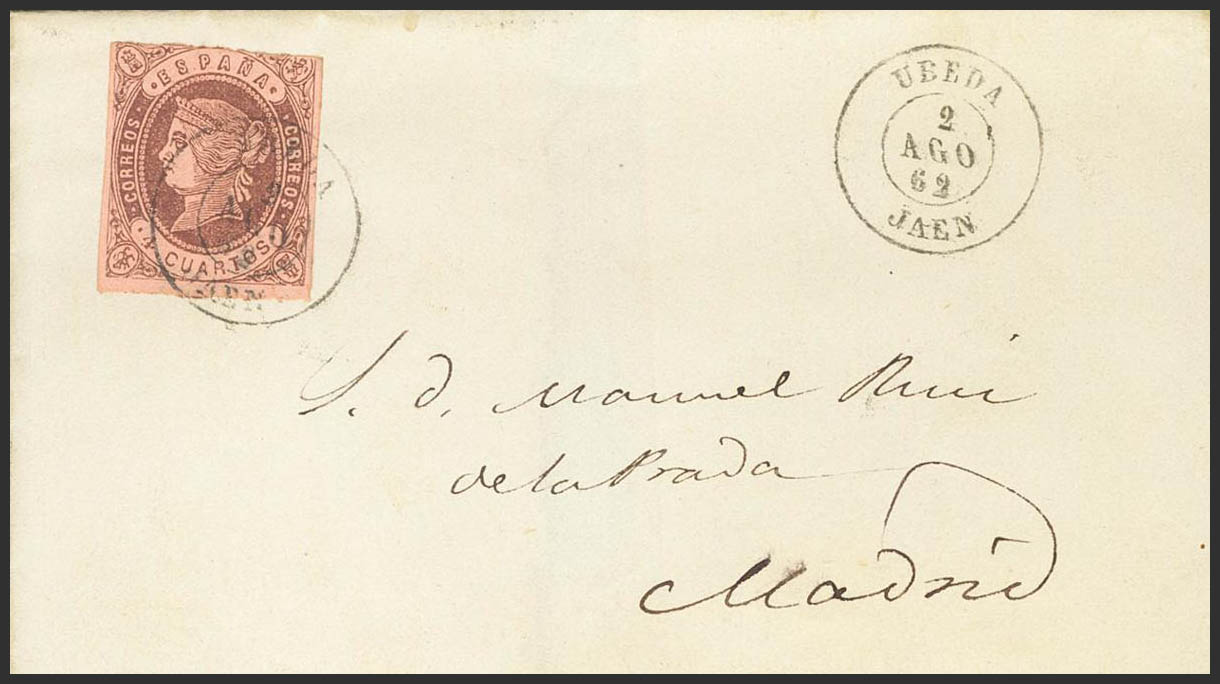 · ESPAÑA ·
CORREOS
CORREOS
CUARTOS
UBEDA
2
AGO
62
JAEN
S. d. Manuel Ruiz
de la Prada
Madrid